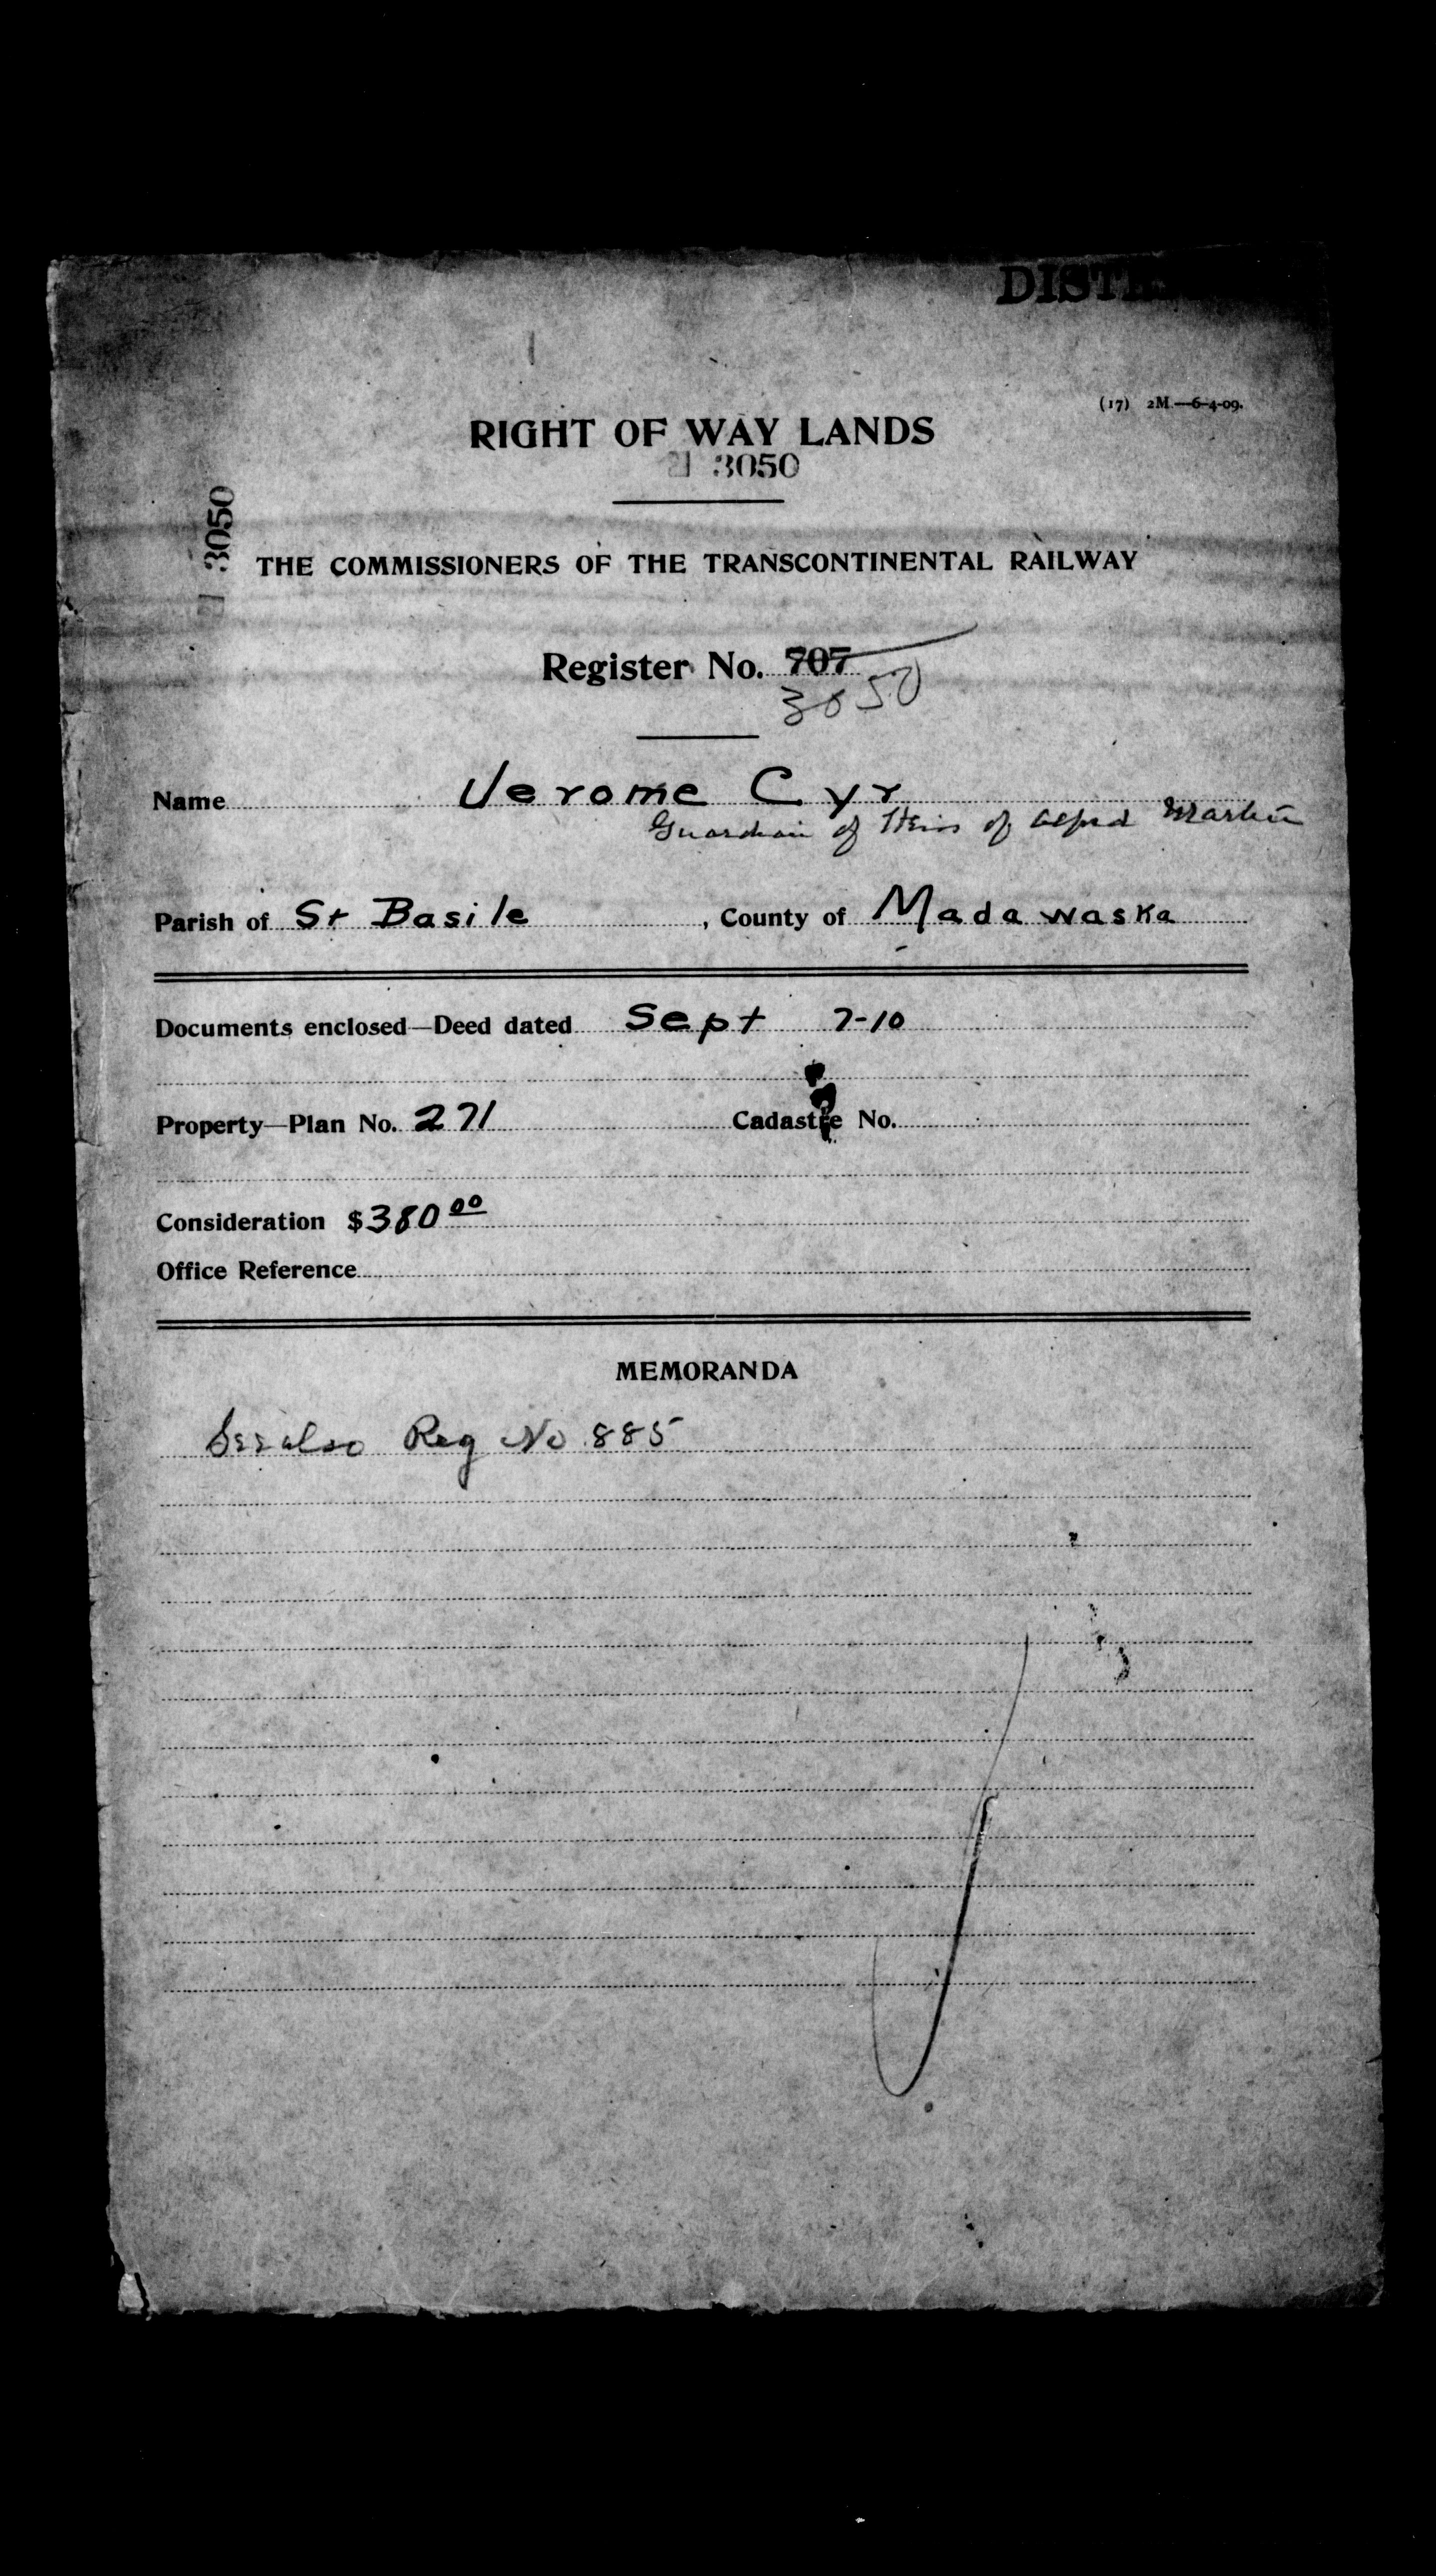 (17) 2M.—6-4-09.
RIGHT OF WAY LANDS
3050
3050
THE COMMISSIONERS OF THE TRANSCONTINENTAL RAILWAY
Register No. 707
3050
Name Jerome Cyr
Guardian of Heirs of Alfred Martin
Parish of St Basile, County of Madawaska
Documents enclosed—Deed dated Sept 7-10
Property—Plan No. 271 Cadastre No.
Consideration $380.00
Office Reference
MEMORANDA
See also Reg No 885